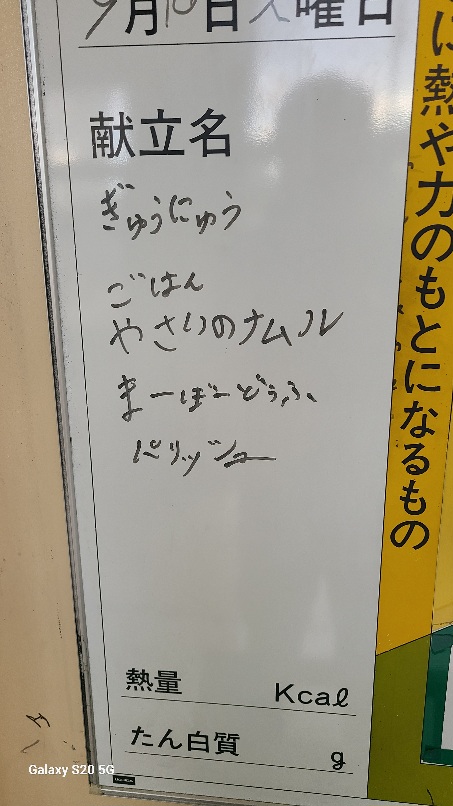 9月10日火曜日
献立名
ぎゅうにゅう
ごはん
やさいのナムル
まーぼーどうふ
パリッシュ
熱量 Kcal
たん白質 g
に熱や力のもとになるもの
Galaxy S20 5G